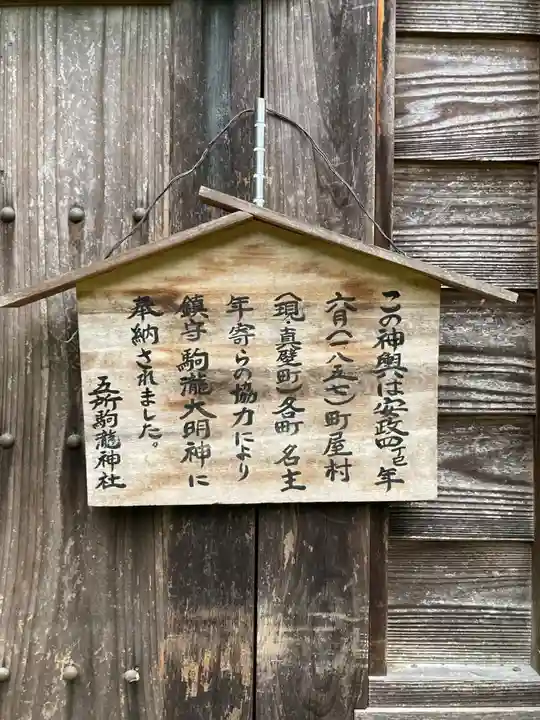 この神輿は安政四丁巳年
六月(一八五七)町屋村
(現・真壁町)各町名主
年寄らの協力により
鎮守駒瀧大明神に
奉納されました。
五所駒瀧神社